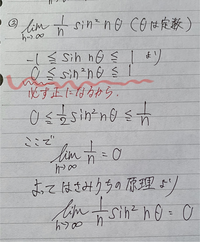 ② lim_{n→∞} 1/n sin² nθ (θは定数)
-1 ≦ sin nθ ≦ 1 より
0 ≦ sin² nθ ≦ 1
必ず正になるから.
0 ≦ 1/2 sin² nθ ≦ 1/n
ここで
lim_{n→∞} 1/n = 0
よってはさみうちの原理より
lim_{n→∞} 1/n sin² nθ = 0